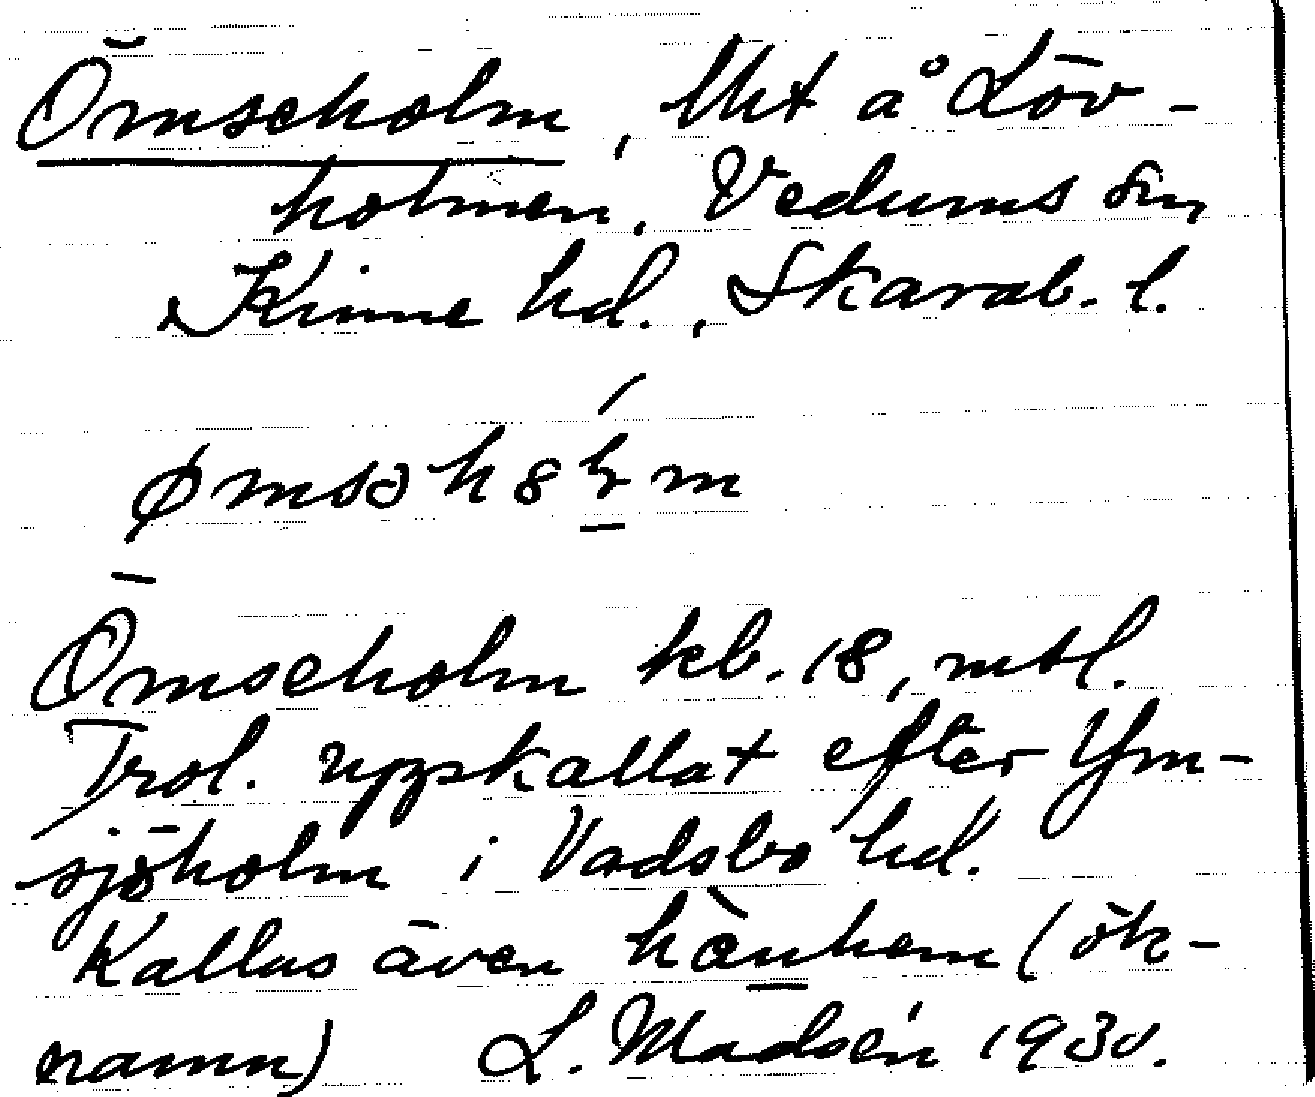 Ömseholm, lht å Löv-
holmen, Vedums sn
Kinne hd., Skarab. l.
Ömseholm kb. 18, mtl.
Trol. uppskallat efter Ym-
sjöholm i Vadsbo hd.
Kallas även (ök-
namn) L. Madsén 1930.